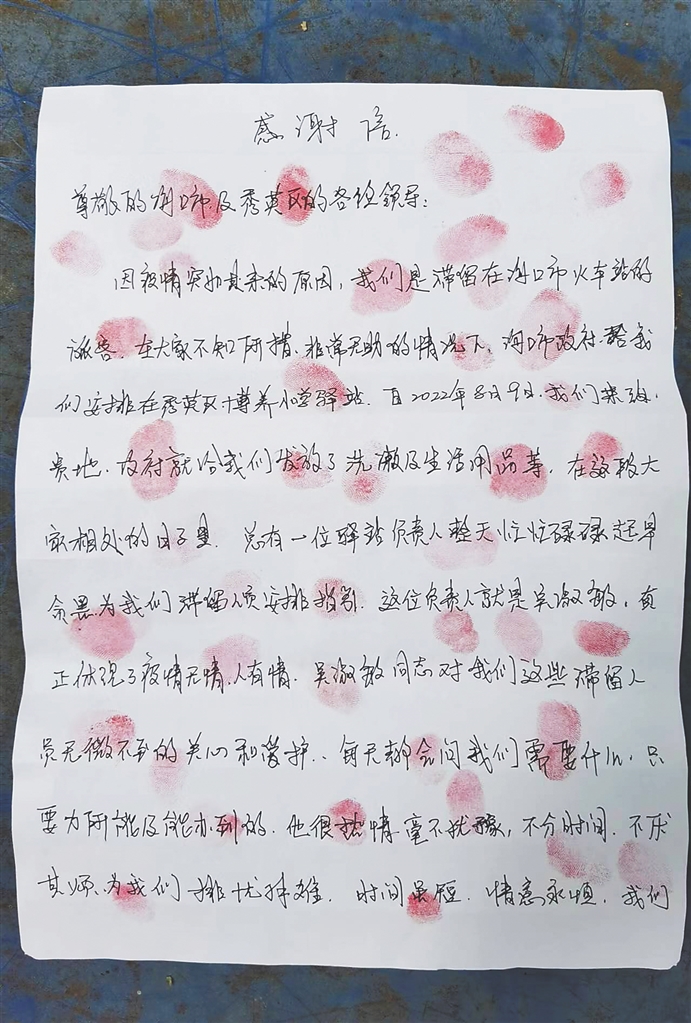 感谢信.
尊敬的海口市及秀英区的各位领导:
因疫情突如其来的原因,我们是滞留在海口市火车站的
旅客.在大家不知所措.非常无助的情况下.海口市政府.帮我
们安排在秀英区博养小学驿站.自2022年8月9日.我们来到.
贵地.政府就给我们发放了洗漱及生活用品等.在这段大
家相处的日子里.总有一位驿站负责人整天忙忙碌碌起早
贪黑为我们滞留人员安排.这位负责人就是吴淑敏,真
正体现了疫情无情.人有情.吴淑敏同志对我们这些滞留人
员无微不至的关心和爱护..每天都会问我们需要什么.只
要力所能及能办到的.他很热情毫不犹豫,不分时间.不厌
其烦.为我们排忧择难.时间虽短.情意永恒.我们